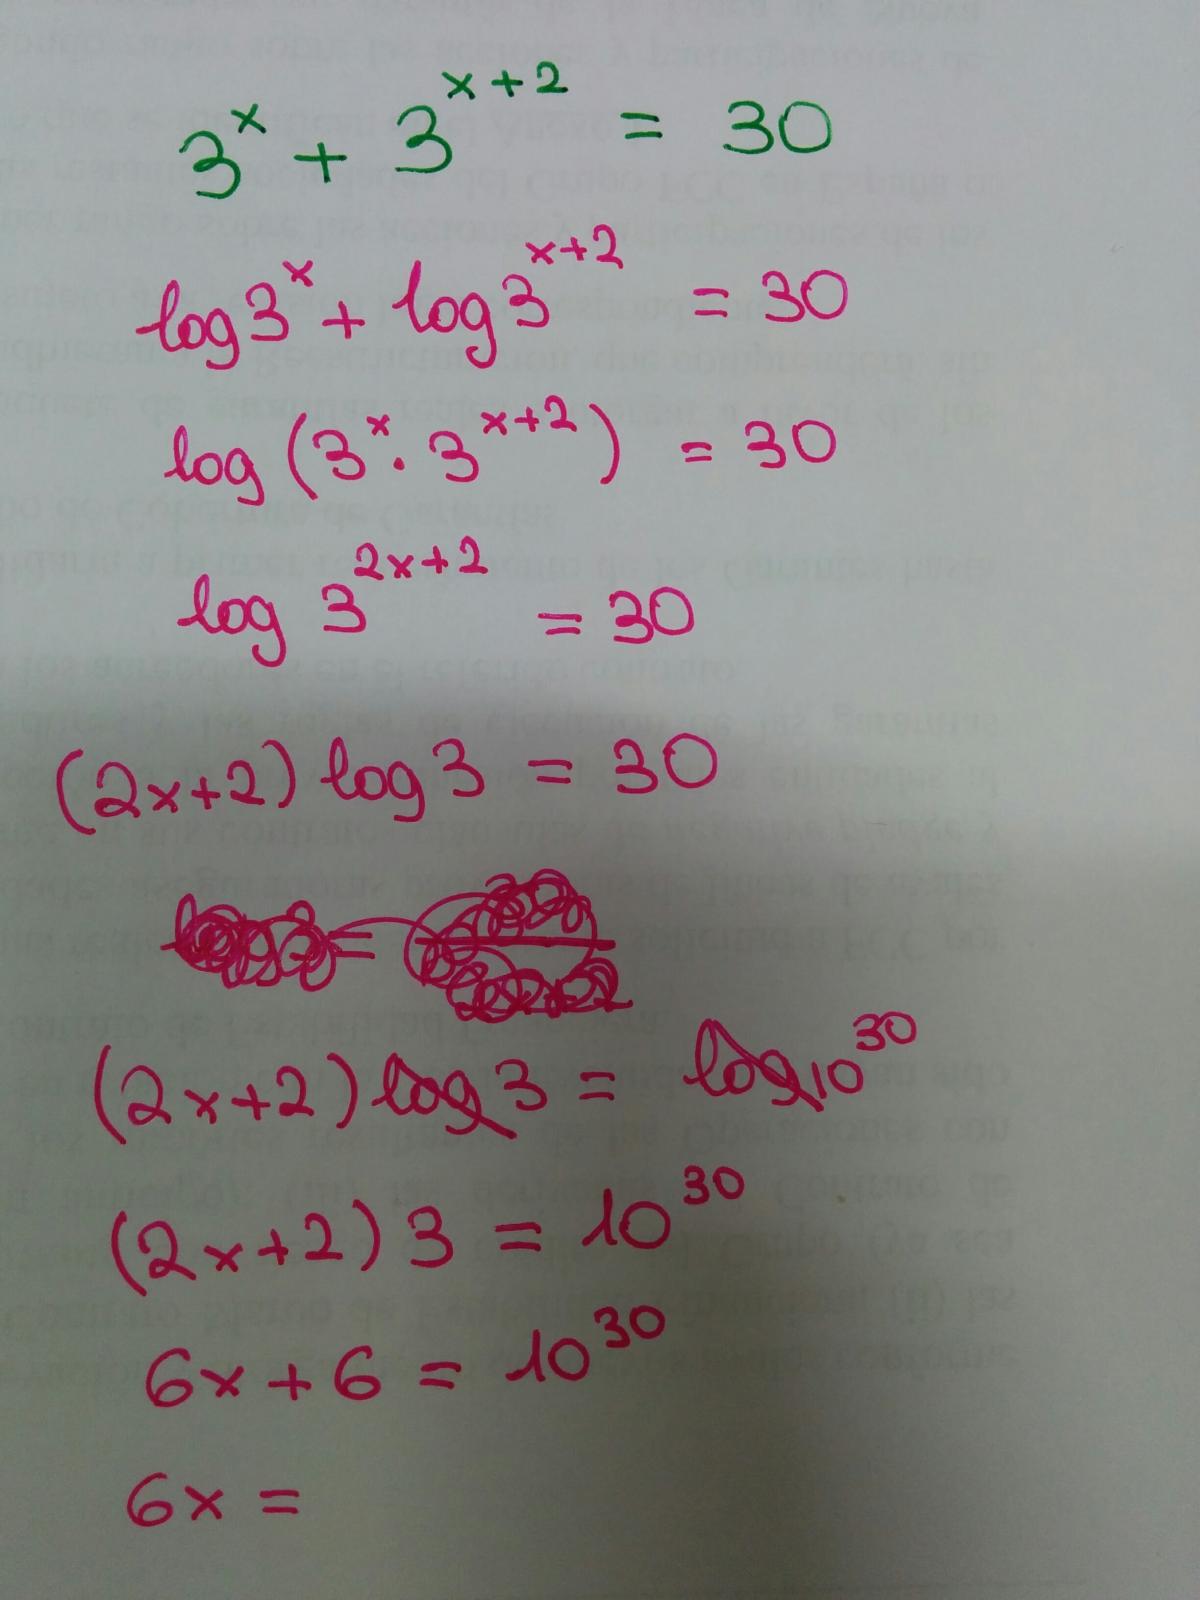 3^x + 3^{x+2} = 30
log 3^x + log 3^{x+2} = 30
log (3^x · 3^{x+2}) = 30
log 3^{2x+2} = 30
(2x+2) log 3 = 30
(2x+2) log 3 = log 10^{30}
(2x+2) 3 = 10^{30}
6x + 6 = 10^{30}
6x =